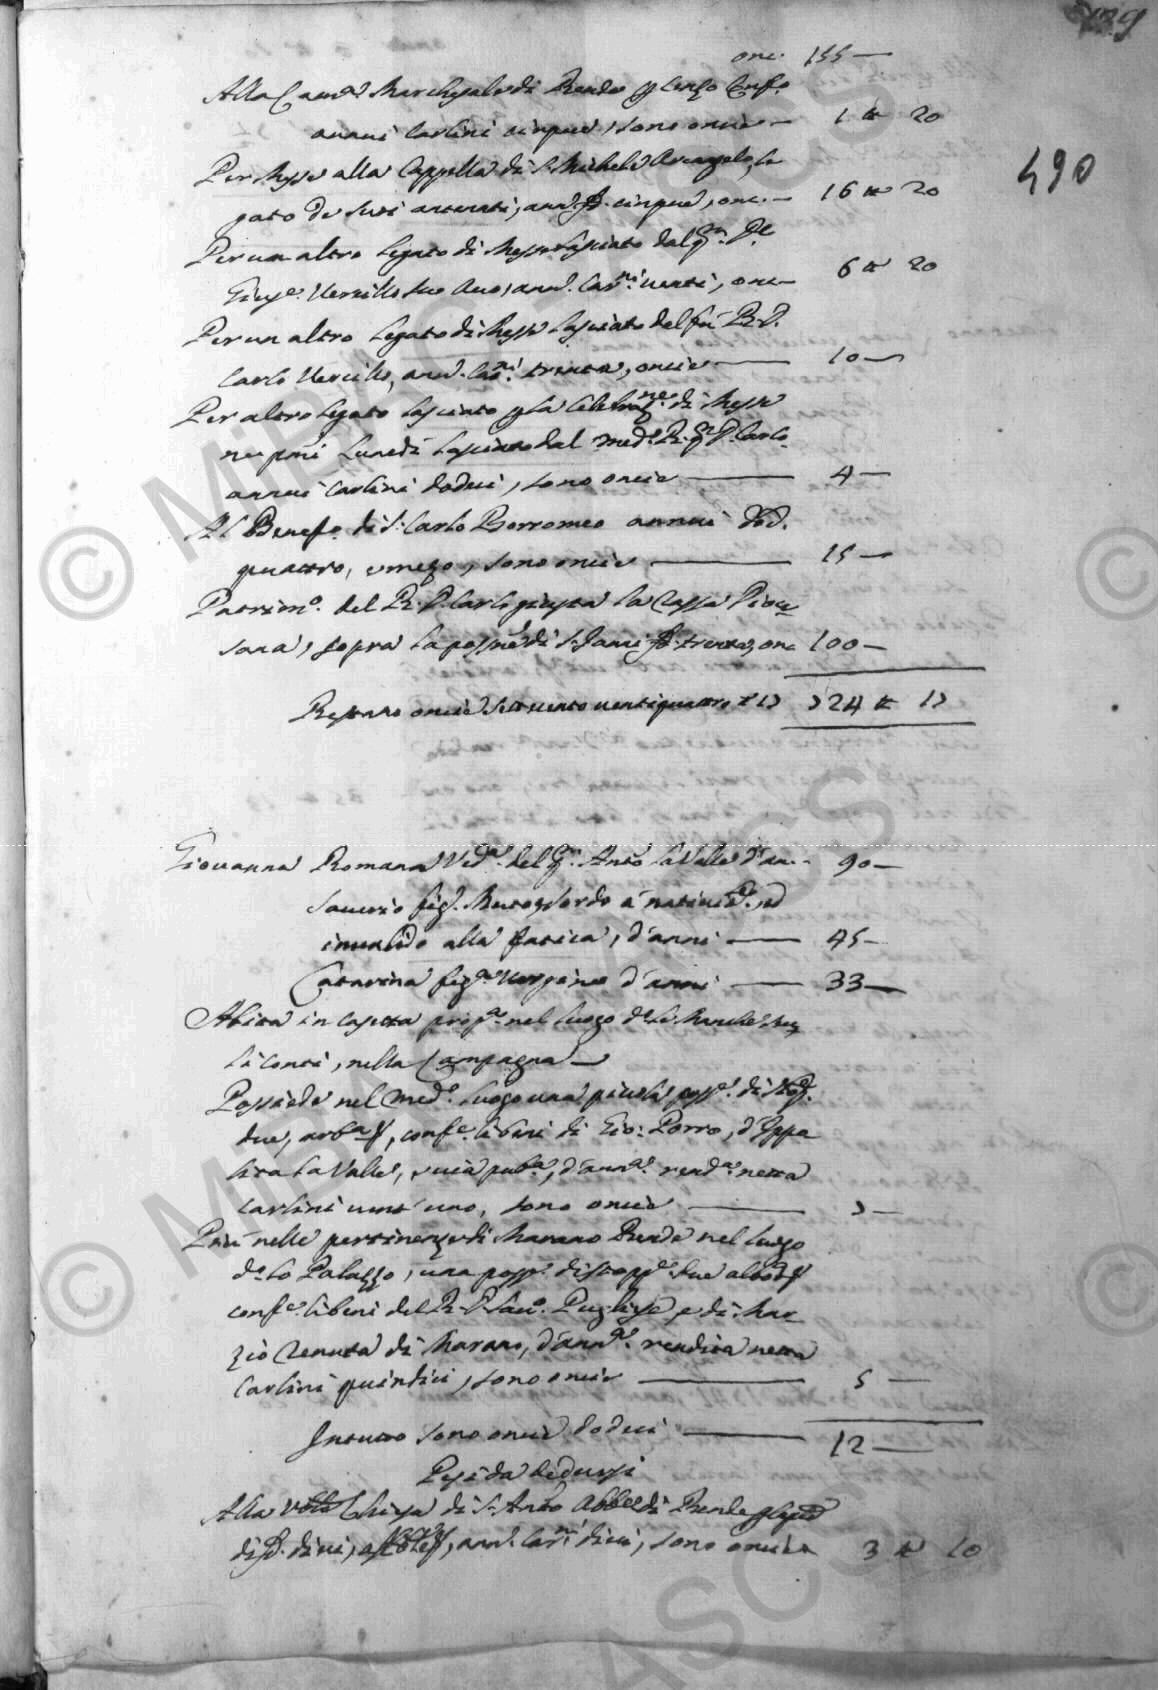 139
490
onc. 155 —
Alla Cam.ª Marchesale di Rende p cenzo Enf.º
annui Carlini cinque, sono oncie — 1 tt 20
Per Messe alla Cappella di S. Michele Arcangelo, le
gato de suoi antenati, ann. D. cinque, onc. — 16 tt 20
Per un altro legato di Messe lasciato dal qm. D.
Giuse. Vercillo suo Avo, ann. Car.ni venti, onc — 6 tt 20
Per un altro legato di Messe lasciato del fu R. D.
Carlo Vercillo, ann. Car.ni trenta, oncie — 10 —
Per altro legato lasciato p la Celebraz.ne di Messe
ne pmi Lunedì lasciato dal med.º R. qm D. Carlo
annui Carlini dodeci, sono oncie — 4 —
Al Benef.º di S. Carlo Borromeo annui dod.
quattro, e mezo, sono oncie — 15 —
Patrim.º del R. D. Carlo giusta la Tassa Dioce
sana, sopra la possne di S. Janni D. trenta, onc 100 —
Restano oncie settecento ventiquattro e 17 724 tt 17
Giovanna Romana Ved.ª del qm. Antº La Valle d'an. — 90 —
Saverio fig.º Muto, e sordo a nativit.e, ed
invalido alla fatica, d'anni — 45 —
Catarina fig.ª vergine d'anni — 33 —
Abita in casetta prop.ª nel luogo d.º li
li Conti, nella Campagna —
Possiede nel med.º luogo una piccola poss.e di stop.
due, arb.ª, conf.e li beni di Gio: Porro, d'Ippo
lita La Valle, e via pub.ª, d'ann.ª rend.ª netta
Carlini vent'uno, sono oncie — 7 —
Più nelle pertinenze di Marano Rende nel luogo
d.º lo Palazzo, una poss.e di stopp.e due alb.
conf.e li beni del R. D. Sav.º Pugliese, e di Mar
zio Tenuta di Marano, d'ann.ª rendita netta
Carlini quindici, sono oncie — 5 —
In tutto sono oncie dodeci — 12 —
Pesi da dedursi
Alla Chiesa di S. Antº Abbe di Rende p cap.le
di D. dieci, ann. Car.ni dieci, sono oncie 3 tt 10